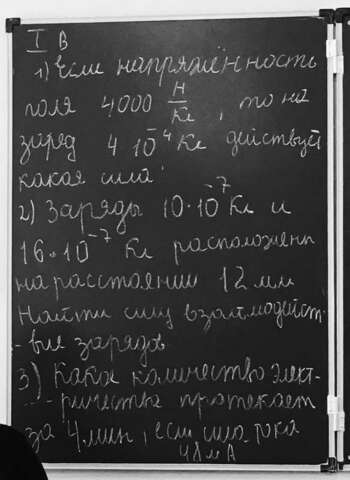 I В
1) Если напряжённость
поля 4000 Н/Кл, то на
заряд 4 10⁻⁴ Кл действует
какая сила
2) Заряды 10·10⁻⁷ Кл и
16·10⁻⁷ Кл расположены
на расстоянии 12 мм
Найти силу взаимодейст-
-вия зарядов
3) Какое количество элект-
-ричества протекает
за 4 мин, если сила тока
48 мА